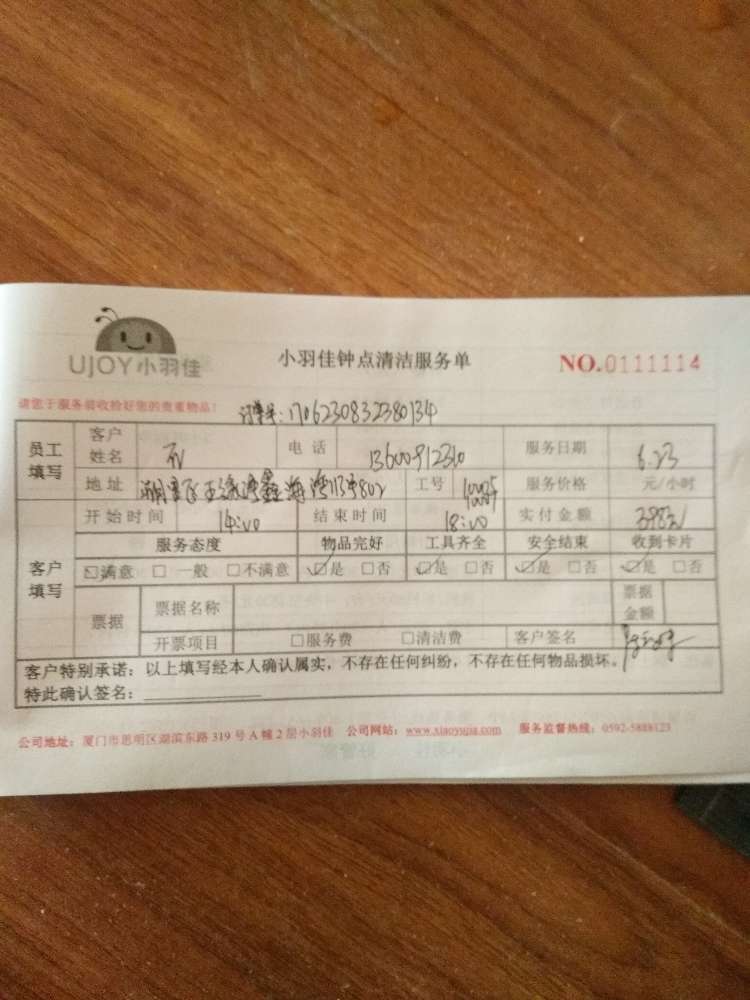 UJOY小羽佳
小羽佳钟点清洁服务单
NO.0111114
请您于服务前收拾好您的贵重物品!
订单号:1706230832380134
员工填写 客户姓名 电话 13600912310 服务日期 6.23
地址 工号 服务价格 元/小时
开始时间 14:00 结束时间 18:00 实付金额 398元
客户填写 服务态度 物品完好 工具齐全 安全结束 收到卡片
☑满意 □一般 □不满意 ☑是 □否 ☑是 □否 ☑是 □否 ☑是 □否
票据 票据名称 票据金额
开票项目 □服务费 □清洁费 客户签名
客户特别承诺:以上填写经本人确认属实,不存在任何纠纷,不存在任何物品损坏。
特此确认签名:
公司地址:厦门市思明区湖滨东路 319 号 A 幢 2 层小羽佳 公司网站:www.xiaoyujia.com 服务监督热线:0592-5888123